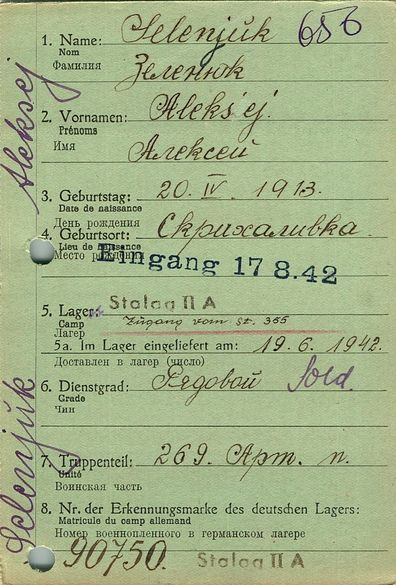 1. Name: Selenjuk 656
Nom
Фамилия Зеленюк
2. Vornamen: Aleksej.
Prénoms
Имя Алексей
3. Geburtstag: 20. IV. 1913.
Date de naissance
День рождения
4. Geburtsort: Скрихаливка.
Lieu de naissance
Место рождения
Eingang 17 8.42
5. Lager: Stalag II A
Camp
Лагерь Zugang vom St. 365
5a. Im Lager eingeliefert am: 19. 6. 1942.
Доставлен в лагерь (число)
6. Dienstgrad: Рядовой Sold.
Grade
Чин
7. Truppenteil: 269. Арт. п.
Unité
Воинская часть
8. Nr. der Erkennungsmarke des deutschen Lagers:
Matricule du camp allemand
Номер военнопленного в германском лагере
90750. Stalag II A
Selenjuk Aleksej